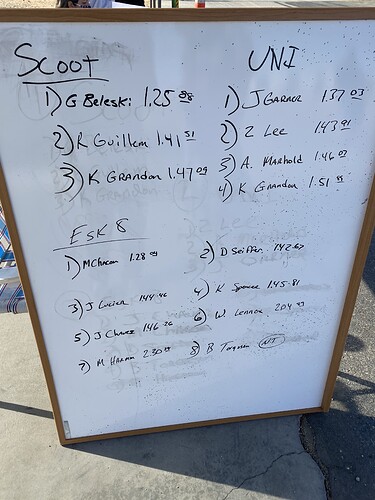 SCOOT
1) G Beleski 1.25 98
2) R Guillem 1.41 51
3) K Grandon 1.47 09
UNI
1) J Garner 1.37 03
2) Z Lee 1.43 91
3) A. Marhold 1.46 07
4) K Grandon 1.51
ESK 8
1) M Chacon 1.28
2) D Seiffer 1.42.67
3) J Lucier 1.44.46
4) K Spence 1.45.81
5) J Chavez 1.46.26
6) W. Lennox 2.04
7) M 2.30
8) B